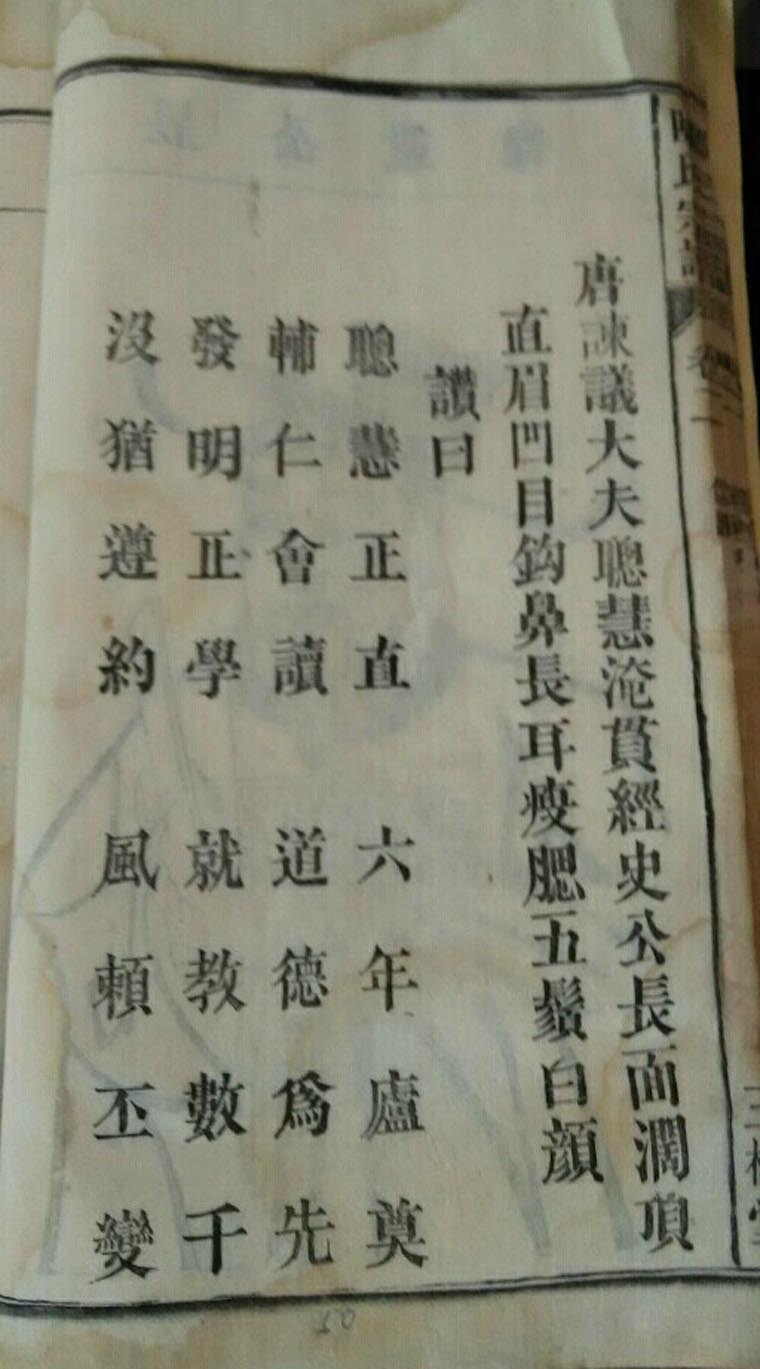 氏宗譜
卷二
唐諫議大夫聰慧淹貫經史公長面濶項
直眉凹目鈎鼻長耳瘦腮五鬚白顏
讚曰
聰慧正直 六年廬奠
輔仁會讀 道德爲先
發明正學 就教數千
沒猶遵約 風頼丕變
50